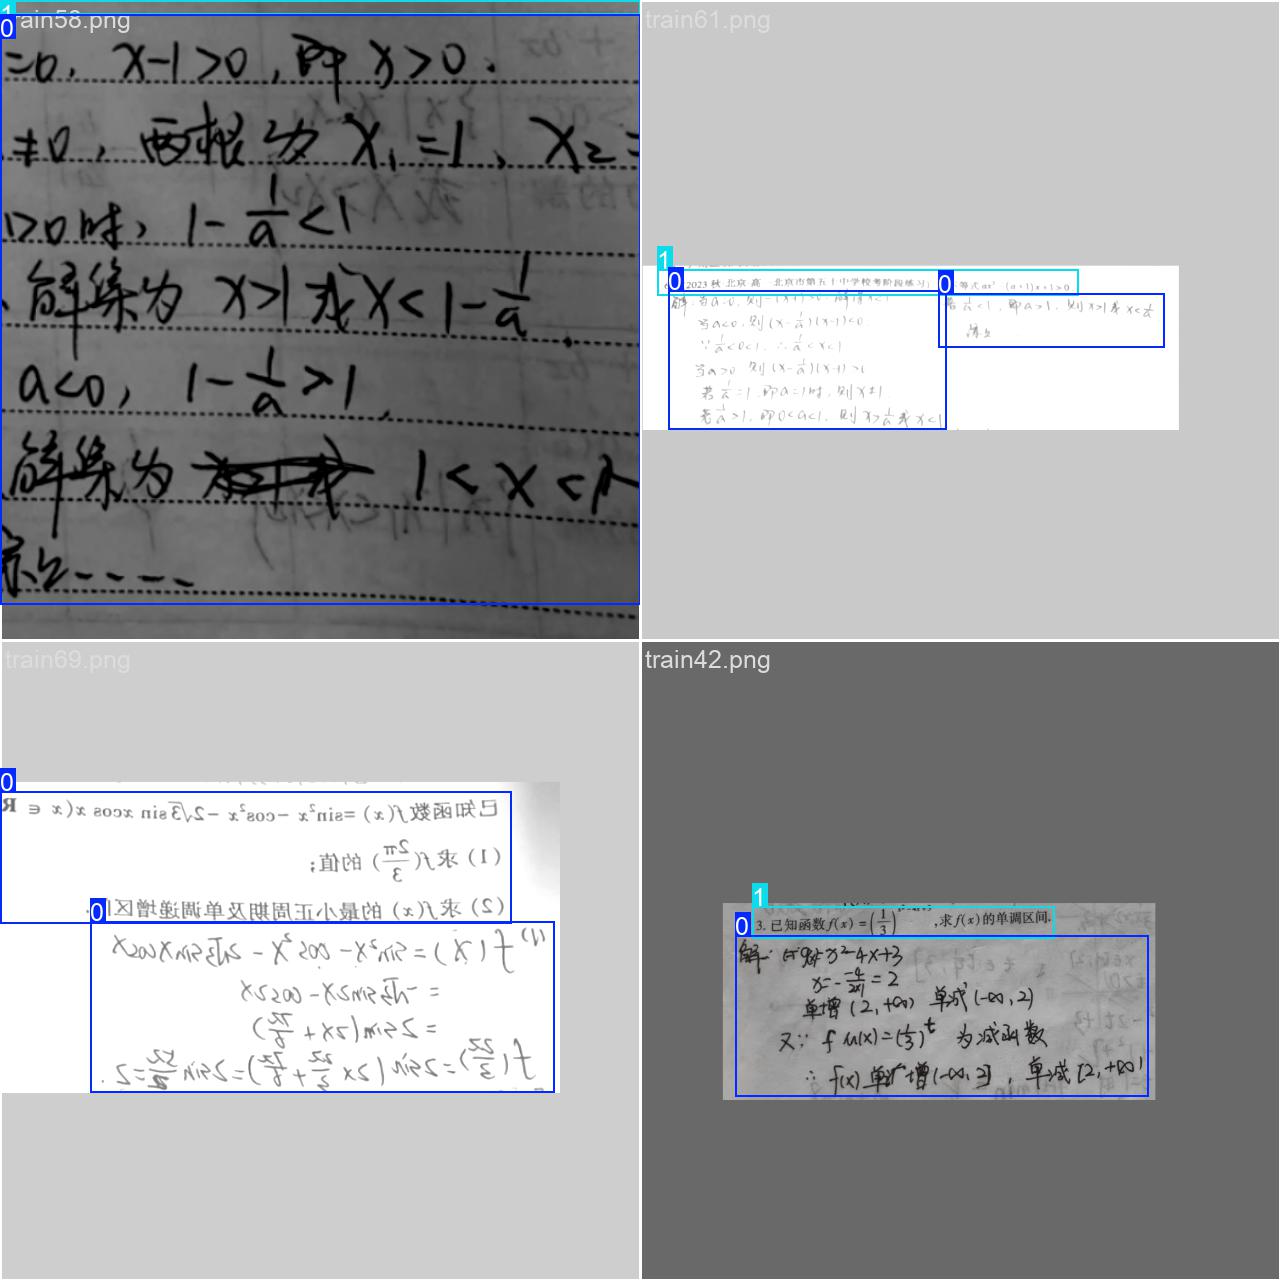 train58.png
1
0
=0, x-1>0, 即 x>0.
≠0, 两根为 x₁=1, x₂=
1>0时, 1-1/a<1
解集为 x>1或x<1-1/a.
a<0, 1-1/a>1,
解集为 1<x<1-
综上-----
train61.png
1
0
2023秋·北京·高 北京市第五十中学校考阶段练习) 等式ax² (a+1)x+1>0
当a<0, 则(x-1/a)(x-1)<0.
∵1/a<0<1, ∴1/a<x<1
当a>0 则(x-1/a)(x-1)>0
若1/a=1, 即a=1时, 则x≠1.
若1/a>1, 即0<a<1, 则x>1/a或x<1
0
若1/a<1, 即a>1, 则x>1或x<1/a
综上
train69.png
0
已知函数f(x)=sin²x-cos²x-2√3sin xcos x(x∈R
(1)求f(2π/3)的值;
(2)求f(x)的最小正周期及单调递增区
0
(1) f(x)=sin²x-cos²x-2√3sinxcosx
=-√3sin2x-cos2x
=-2sin(2x+π/6)
f(2π/3)=-2sin(2×2π/3+π/6)=-2sin3π/2=2.
train42.png
1
3. 已知函数f(x)=(1/3) ,求f(x)的单调区间.
0
解: x²-4x+3
x=--4/2×1=2
单增(2,+∞) 单减(-∞,2)
又∵ f u(x)=(1/3)^t 为减函数
∴ f(x)单增(-∞,2], 单减[2,+∞)